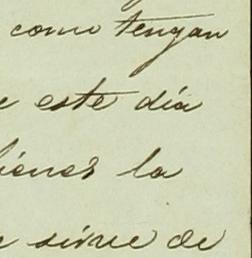 como tengan
e este día
bienes la
e sirve de